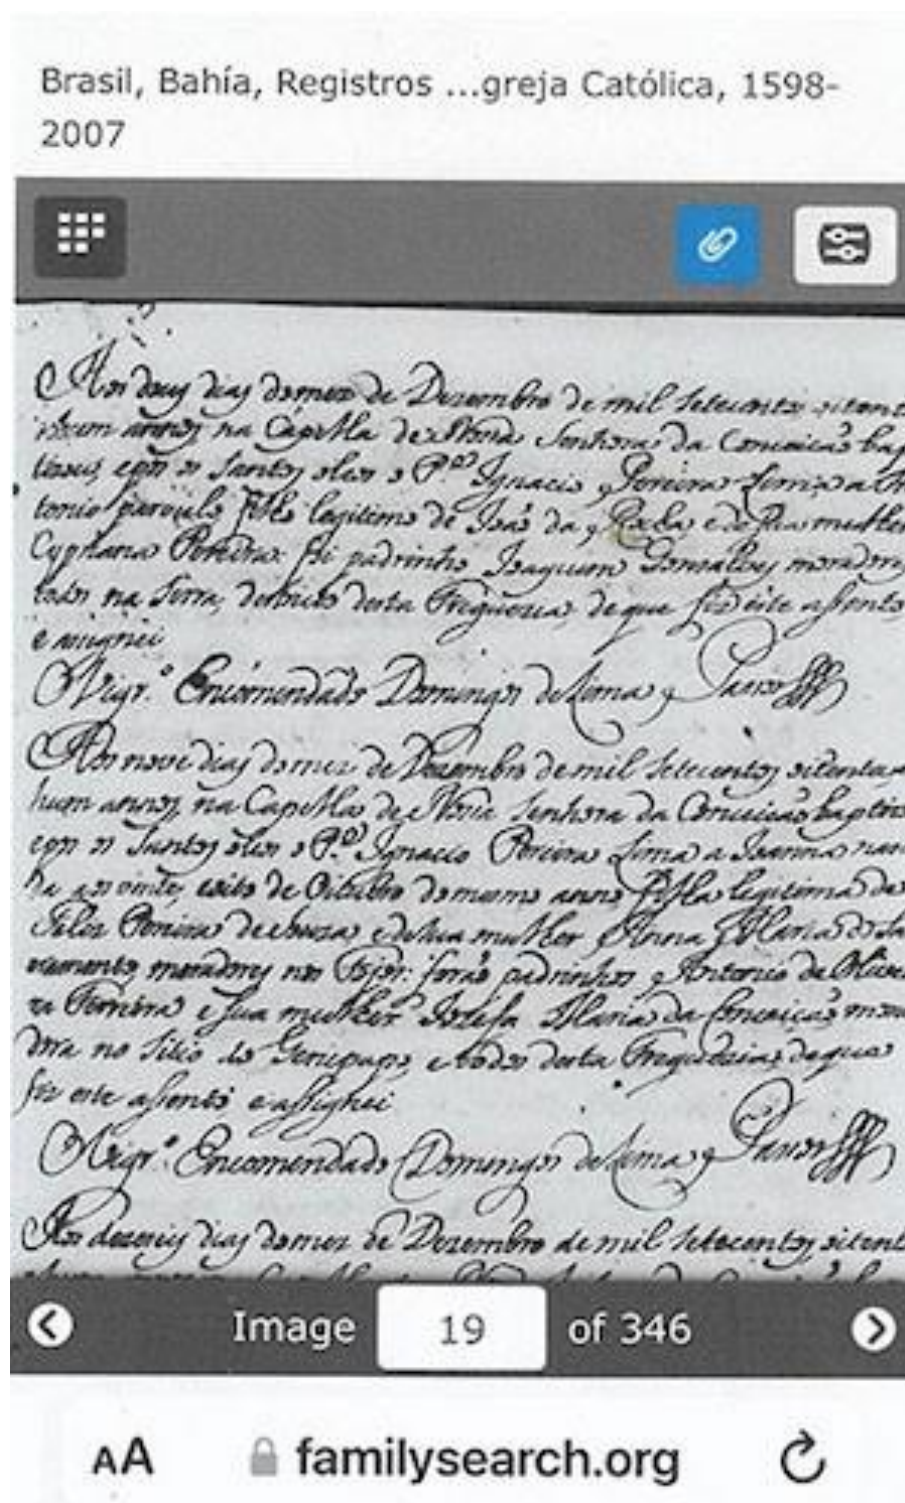 Brasil, Bahía, Registros ...greja Católica, 1598-
2007
Aos dous dias do mez de Dezembro de mil setecentos oitent
hum annos na Capella de Nossa Senhora da Conceicaõ bap
tizou, e pos os Santos oleos o P.e Ignacio Pereira Lima a An
tonio parvulo filho legitimo de Joaõ da Rocha e de sua mulher
Cypriana Pereira: foi padrinho Joaquim Gonsalves moradores
todos na Serra, destricto desta Freguezia, de que fiz este assento
e assignei
Vigr.o Encomendado Domingos de Lima
Aos nove dias do mez de Dezembro de mil setecentos oitenta e
hum annos, na Capella de Nossa Senhora da Conceicaõ baptizou
e pos os Santos oleos o P.e Ignacio Pereira Lima a Joanna nasci
da aos vinte, e oito de Oitubro do mesmo anno, filha legitima de
Felex Pereira de Souza, e de sua mulher Anna Maria do Sa
cramento, moradores nos foraõ padrinhos Antonio de Olivei
ra Ferreira e sua mulher Jozefa Maria da Conceicaõ mora
dora no sitio do Genipapo, e todos desta Freguezia, de que
fiz este assento e assignei
Vigr.o Encomendado Domingos de Lima
Aos dezeseis dias do mez de Dezembro de mil setecentos, oitent
Image 19 of 346
AA familysearch.org